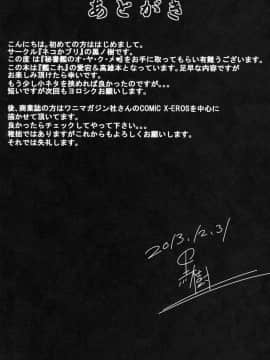 あとがき
こんにちは。初めての方ははじめまして。
サークル『ネコかブリ』の黒ノ樹です。
この度は『秘書艦のオ・ヤ・ク・メ』をお手に取ってもらい有難うございます。
この本は『艦これ』の愛宕&高雄本となっています。足早な内容ですが
お楽しみ頂けたら幸いです。
もう少し小ネタを挟めれば良かったのですが。。。
短いですが次回もヨロシクお願いします。
後、商業誌の方はワニマガジン社さんのCOMIC X-EROSを中心に
描かせて頂いてます。
良かったらチェックしてやって下さい。。。
稚拙ではありますがこれからもよろしくお願いします。
それでは失礼します。
2013.12.31